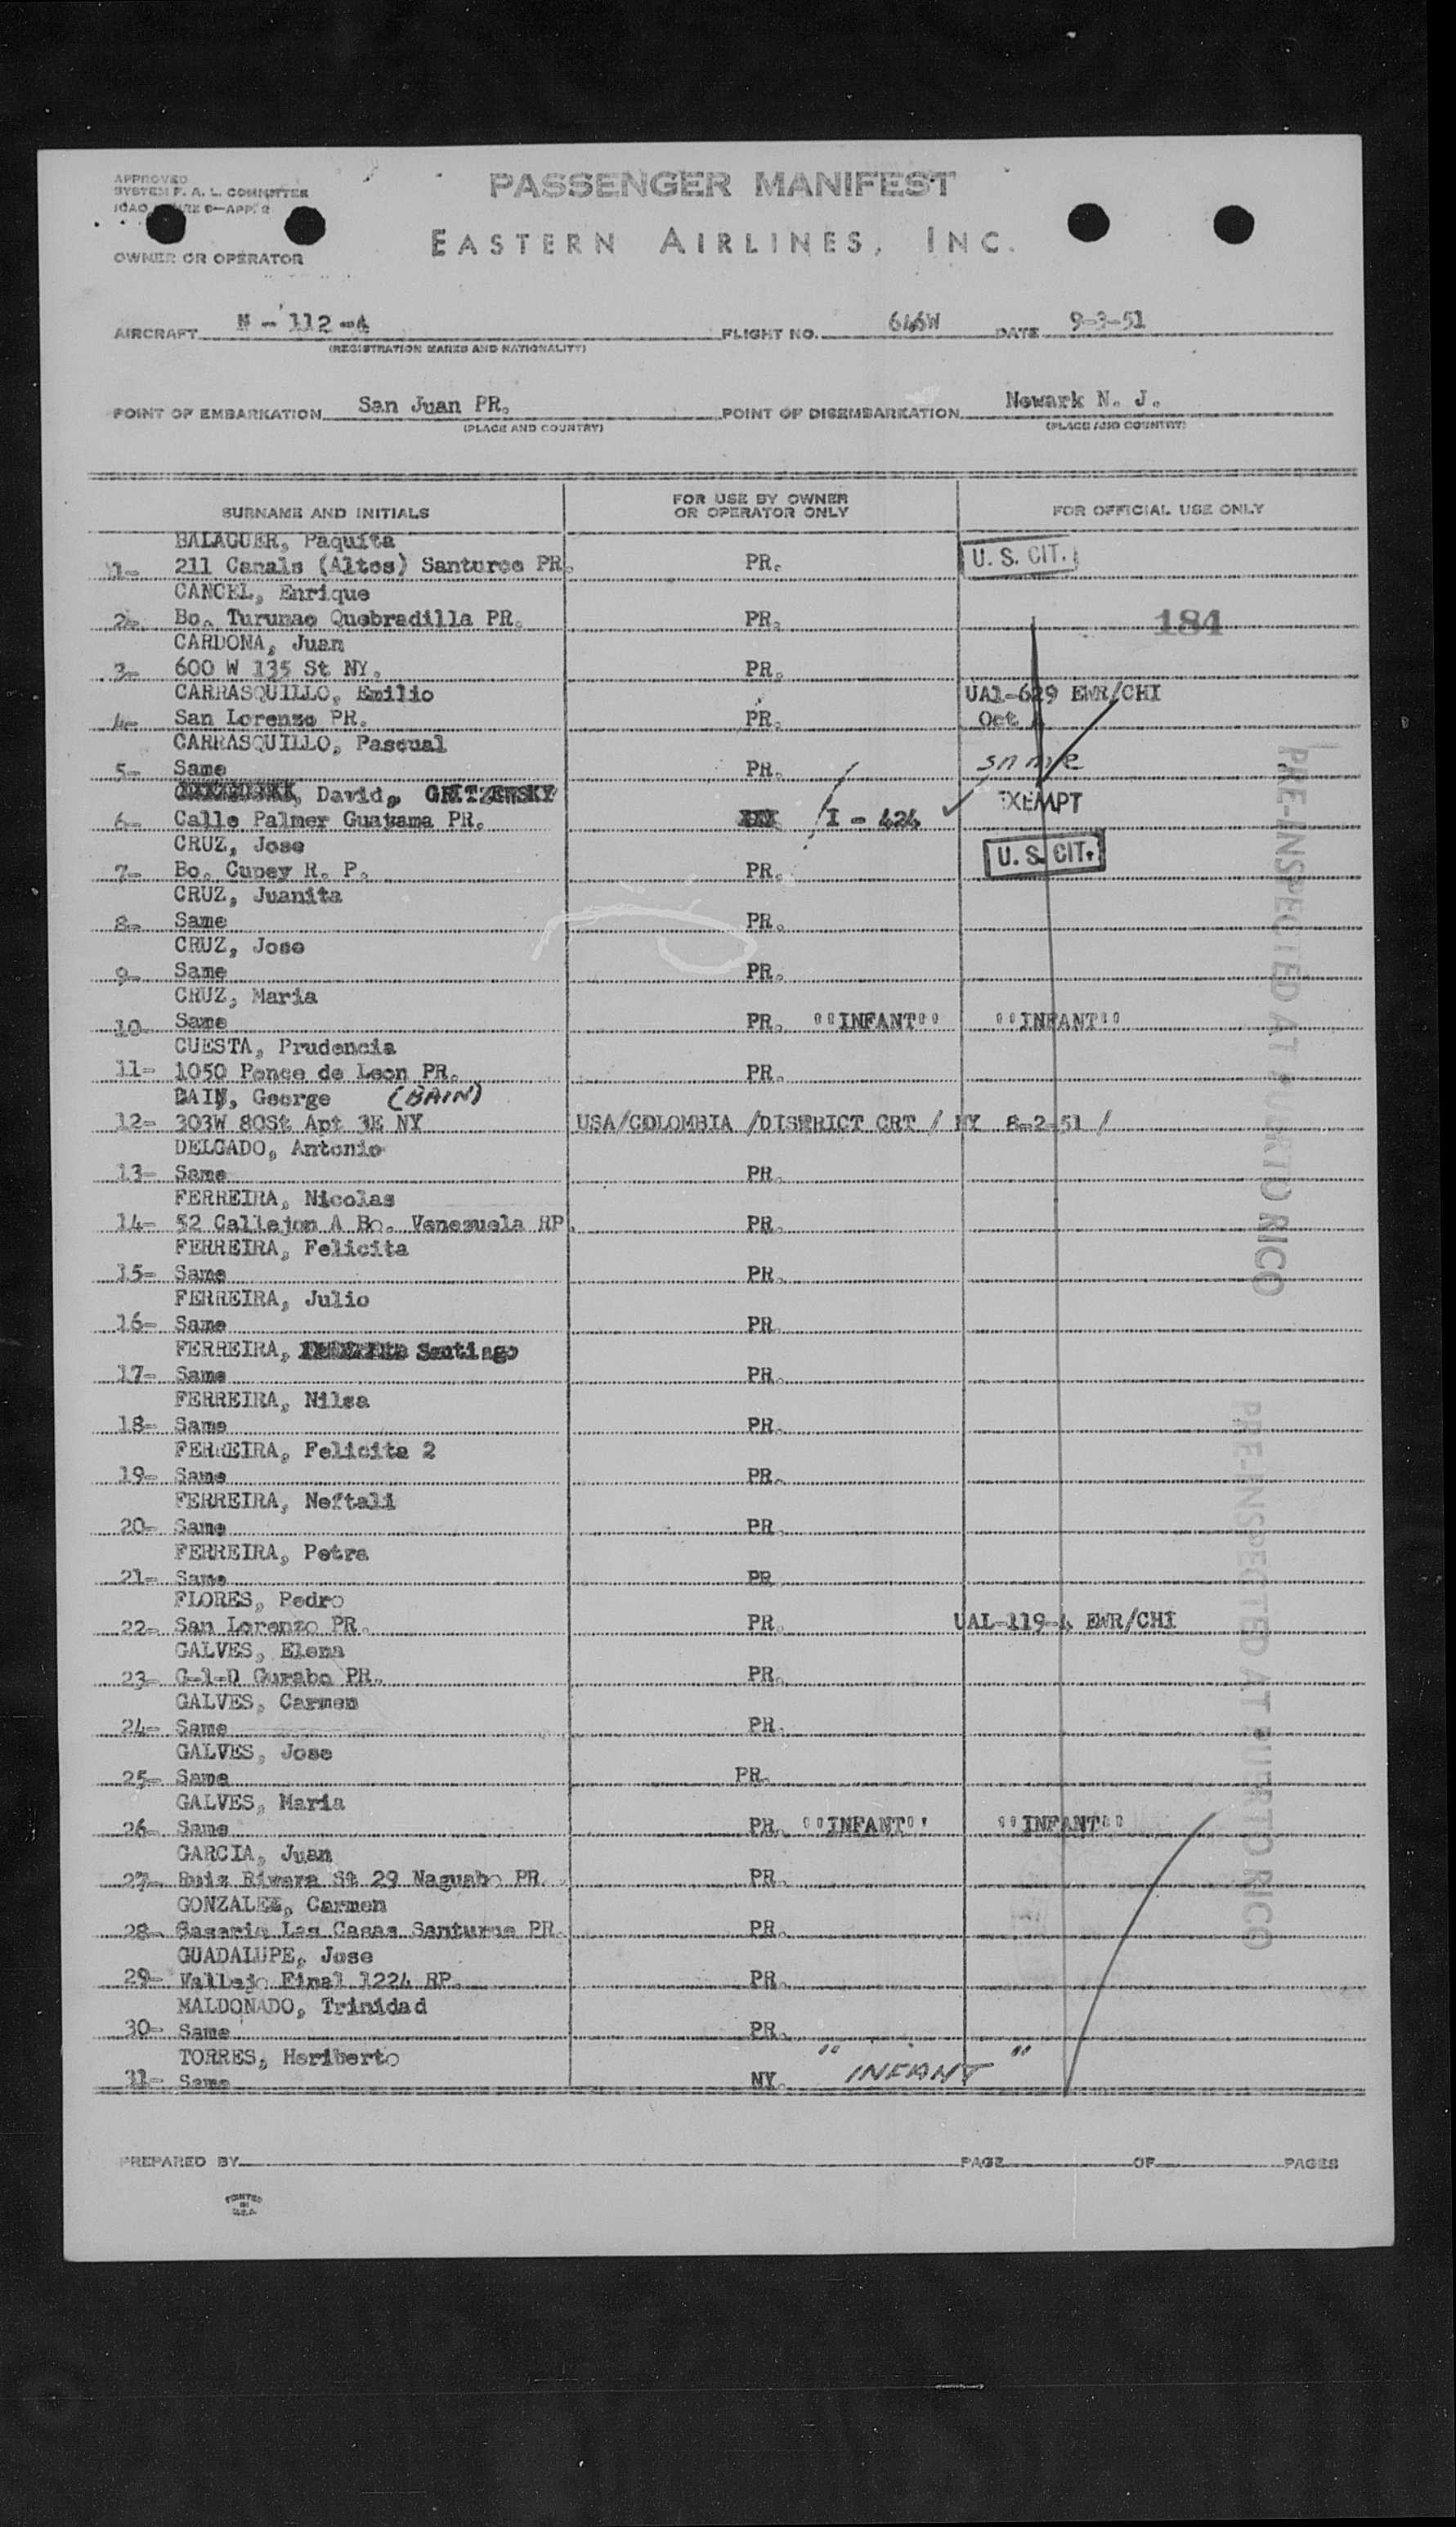 APPROVED
SYSTEM F. A. L. COMMITTEE
ICAO 9—APP. 2
PASSENGER MANIFEST
EASTERN AIRLINES, INC.
OWNER OR OPERATOR
AIRCRAFT N - 112-A FLIGHT NO. 646W DATE 9-3-51
(REGISTRATION MARKS AND NATIONALITY)
POINT OF EMBARKATION San Juan PR. POINT OF DISEMBARKATION Newark N. J.
(PLACE AND COUNTRY) (PLACE AND COUNTRY)
SURNAME AND INITIALS FOR USE BY OWNER OR OPERATOR ONLY FOR OFFICIAL USE ONLY
BALAGUER, Paquita
1- 211 Canals (Altos) Santurce PR. PR. U. S. CIT.
CANCEL, Enrique
2- Bo. Turunao Quebradilla PR. PR. 184
CARDONA, Juan
3- 600 W 135 St NY. PR.
CARRASQUILLO, Emilio UAl-629 EWR/CHI
4- San Lorenzo PR. PR. Oct
CARRASQUILLO, Pascual
5- Same PR. same
David, GRITZEWSKY EXEMPT
6- Calle Palmer Guayama PR. I - 424
CRUZ, Jose
7- Bo. Cupey R. P. PR. U. S. CIT.
CRUZ, Juanita
8- Same PR.
CRUZ, Jose
9- Same PR.
CRUZ, Maria
10- Same PR. ''INFANT'' ''INFANT''
CUESTA, Prudencia
11- 1050 Ponce de Leon PR. PR.
BAIN, George (BAIN)
12- 303W 80St Apt 3E NY USA/COLOMBIA /DISTRICT CRT / NY 8-2-51 /
DELGADO, Antonio
13- Same PR.
FERREIRA, Nicolas
14- 52 Callejon A Bo. Venezuela RP. PR.
FERREIRA, Felicita
15- Same PR.
FERREIRA, Julio
16- Same PR.
FERREIRA, Santiago
17- Same PR.
FERREIRA, Nilsa
18- Same PR.
FERREIRA, Felicita 2
19- Same PR.
FERREIRA, Neftali
20- Same PR.
FERREIRA, Petra
21- Same PR
FLORES, Pedro
22- San Lorenzo PR. PR. UAL-119-4 EWR/CHI
GALVES, Elena
23- G-1-D Gurabo PR. PR.
GALVES, Carmen
24- Same PR.
GALVES, Jose
25- Same PR.
GALVES, Maria
26- Same PR. ''INFANT'' ''INFANT''
GARCIA, Juan
27- Ruiz Rivera St 29 Naguabo PR. PR.
GONZALEZ, Carmen
28- Caserio Las Casas Santurce PR. PR.
GUADALUPE, Jose
29- Vallejo Final 1224 RP. PR.
MALDONADO, Trinidad
30- Same PR.
TORRES, Heriberto
31- Same NY. " INFANT "
PRE-INSPECTED AT PUERTO RICO
PRE-INSPECTED AT PUERTO RICO
PREPARED BY PAGE OF PAGES
PRINTED
IN
U.S.A.